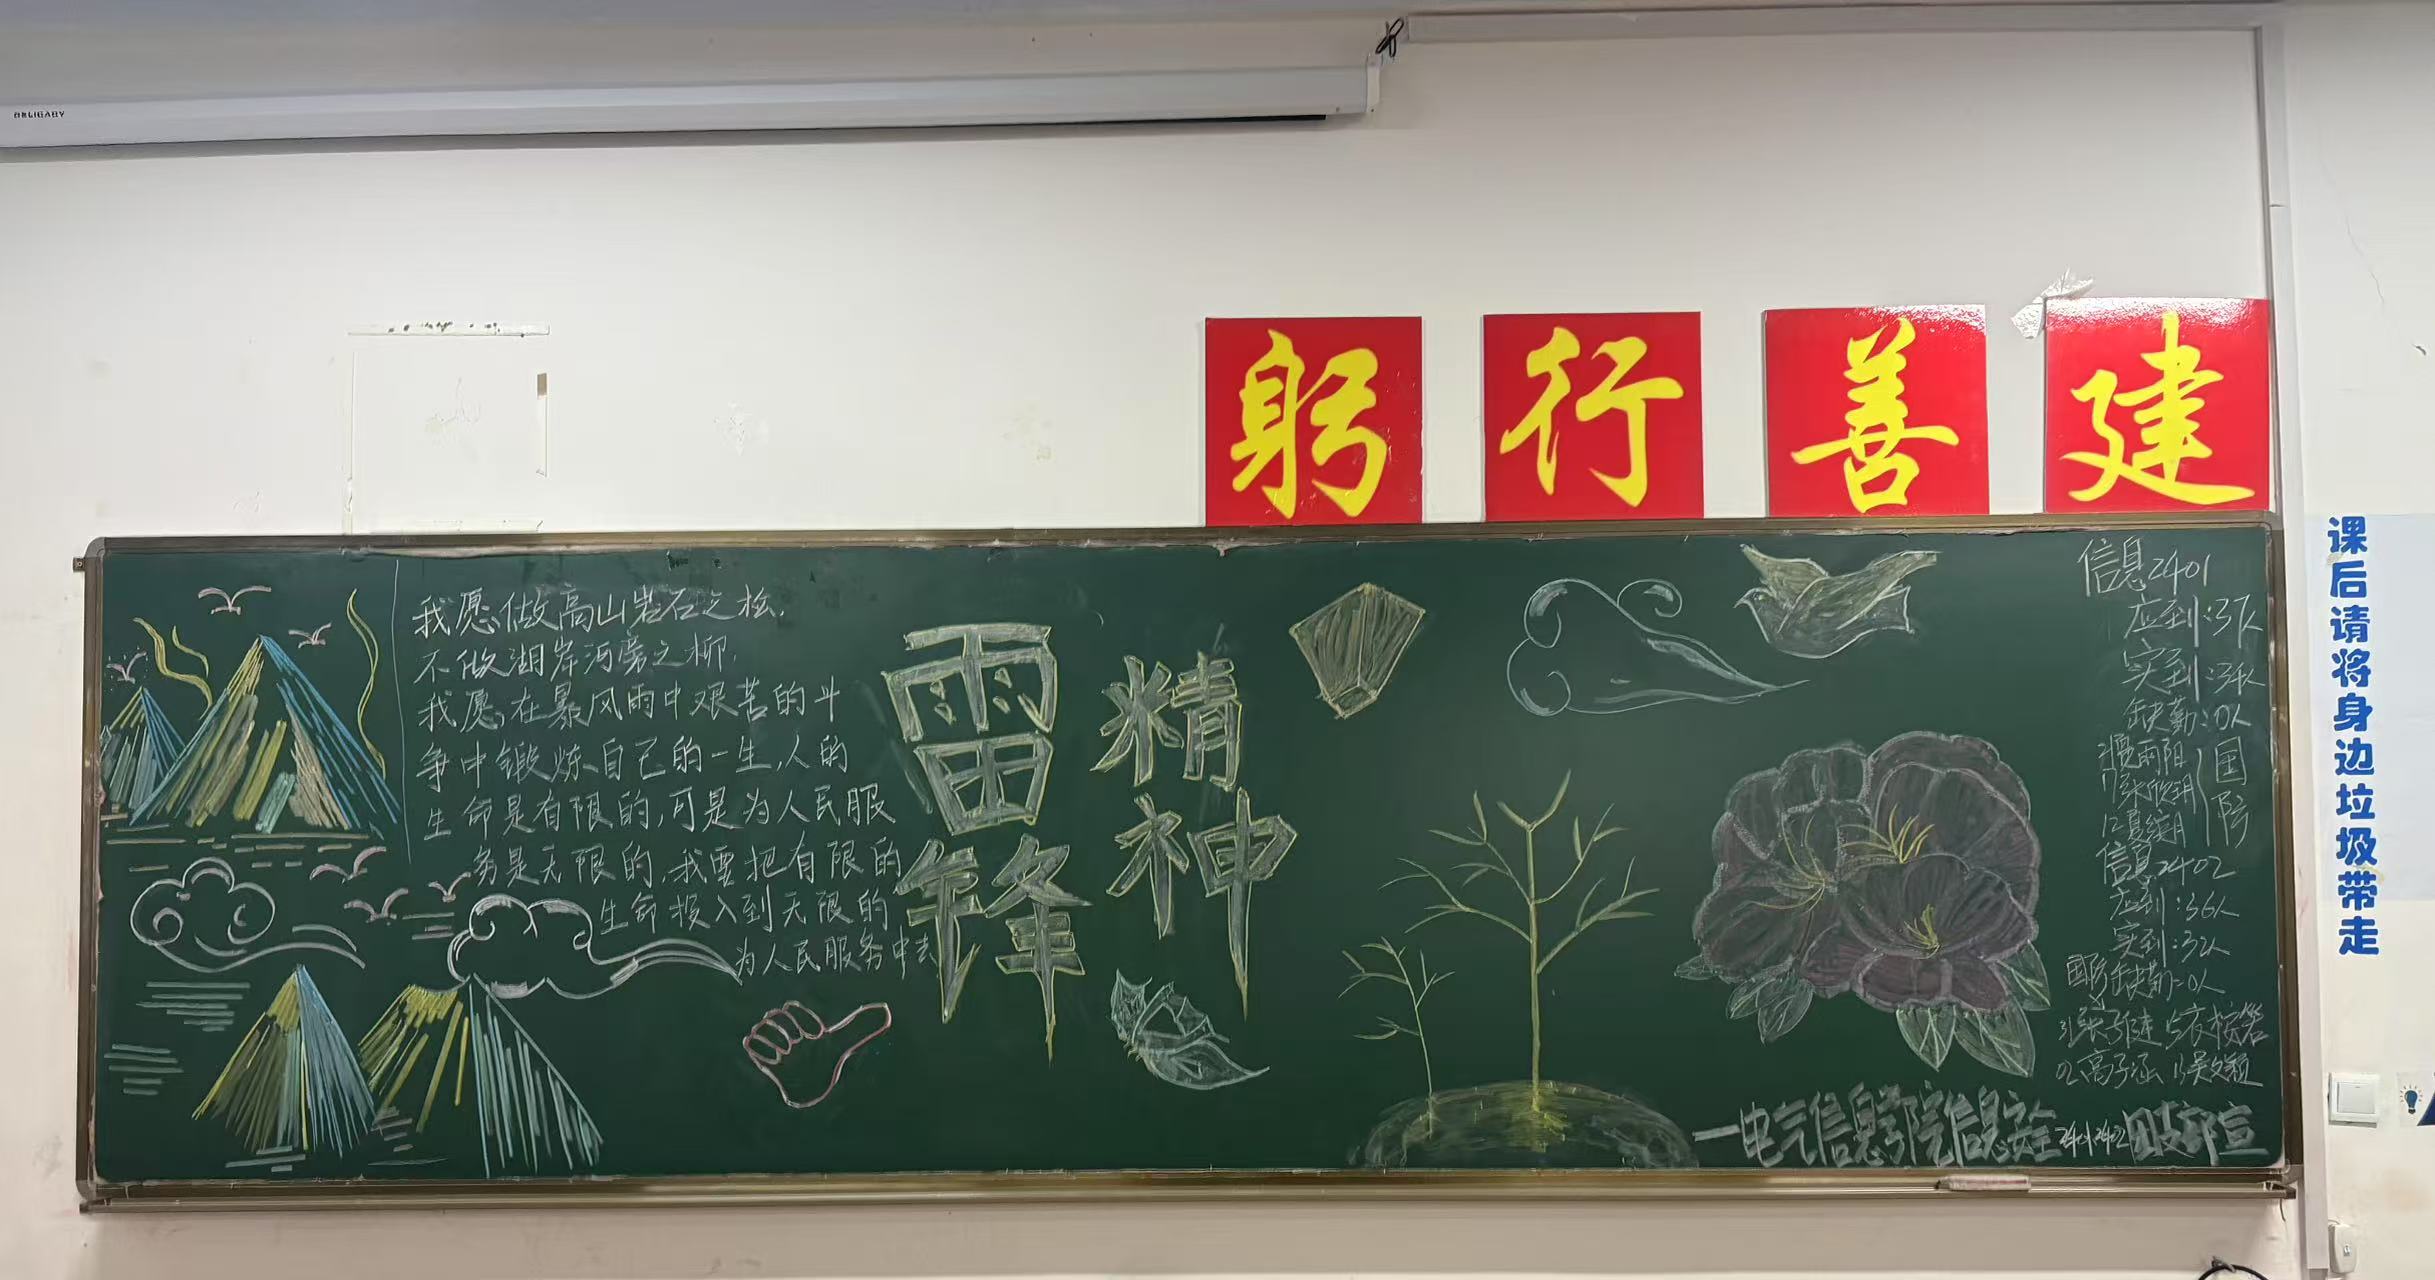 DELIGABY
躬行善建
我愿做高山岩石之松,
不做湖岸河旁之柳,
我愿在暴风雨中艰苦的斗
争中锻炼自己的一生,人的
生命是有限的,可是为人民服
务是无限的,我要把有限的
生命投入到无限的
为人民服务中去
雷锋
精神
信息2401
应到:37人
实到:34人
缺勤:0人
国防
信息2402
应到:36人
实到:32人
国防 缺勤:0人
高子涵
一电气信息学院信息安全2401 2402团支部宣
课后请将身边垃圾带走